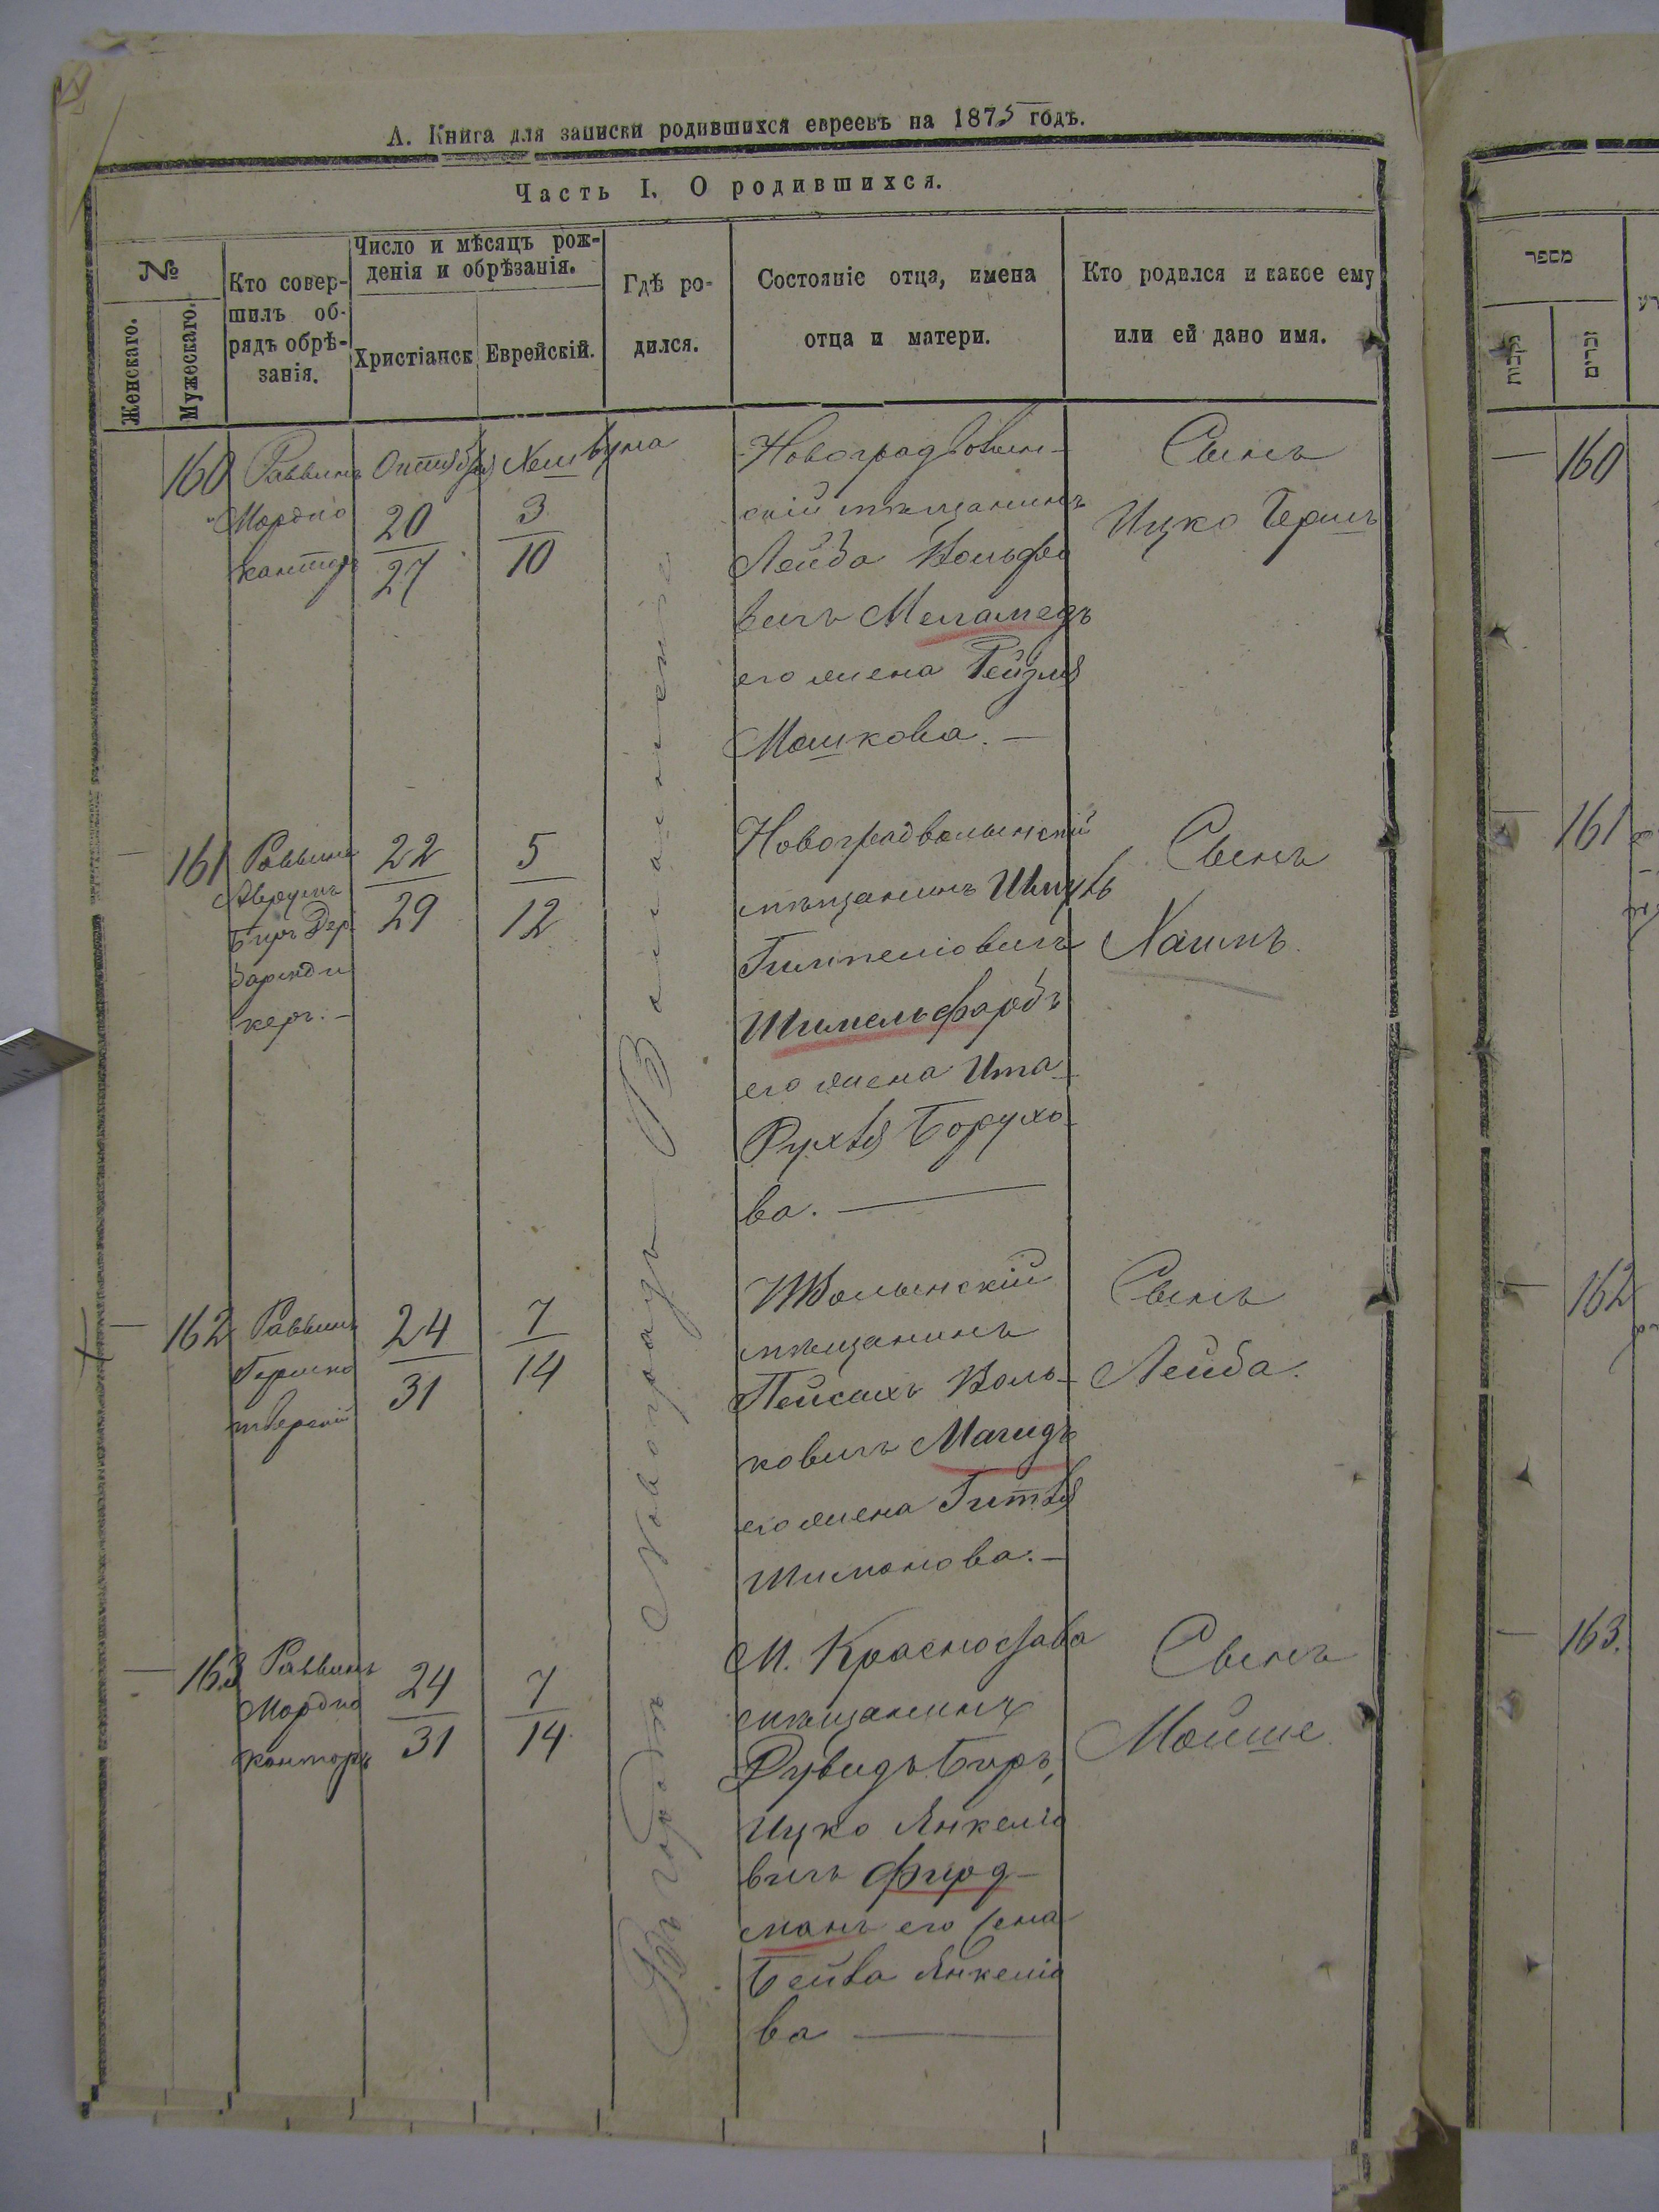 А. Книга для записки родившихся евреевъ на 1875 годъ.
Часть I. О родившихся.
№
Женскаго.
Мужескаго.
Кто совер-
шилъ об-
рядъ обрѣ-
занія.
Число и мѣсяцъ рож-
денія и обрѣзанія.
Христіанск
Еврейскій.
Гдѣ ро-
дился.
Состояніе отца, имена
отца и матери.
Кто родился и какое ему
или ей дано имя.
Въ городѣ Новоградъ Волынскѣ
160
Раввинъ
Мордко
Канторъ
Октября
20
27
Хешвуна
3
10
Новоградволын-
скій мѣщанинъ
Лейба Вольфо
вичъ Меламедъ
его жена Рейзля
Мошкова. —
Сынъ
Ицко Гершъ
— 161
Раввинъ
Аврумъ
Беръ Дер
керъ. —
22
29
5
12
Новоградволынскій
мѣщанинъ Шмуль
Гимпеліовичъ
Шимельфарбъ
его жена Ита-
Рухля Борухо-
ва. —
Сынъ
Хаимъ.
— 162
Раввинъ
Гершко
тверскій
24
31
7
14
НВолынскій
мѣщанинъ
Пейсахъ Воль-
ковичъ Магидъ
его жена Гитля
Шимонова. —
Сынъ
Лейба.
— 163
Раввинъ
Мордко
Канторъ
24
31
7
14
М. Красностава
мѣщанинъ
Ицко Янкеліо
вичъ Фирд-
манъ его жена
Бейла Янкеліо
ва —
Сынъ
Мойше
מספר
נקבות
זכרים
— 160
— 161
— 162
— 163.